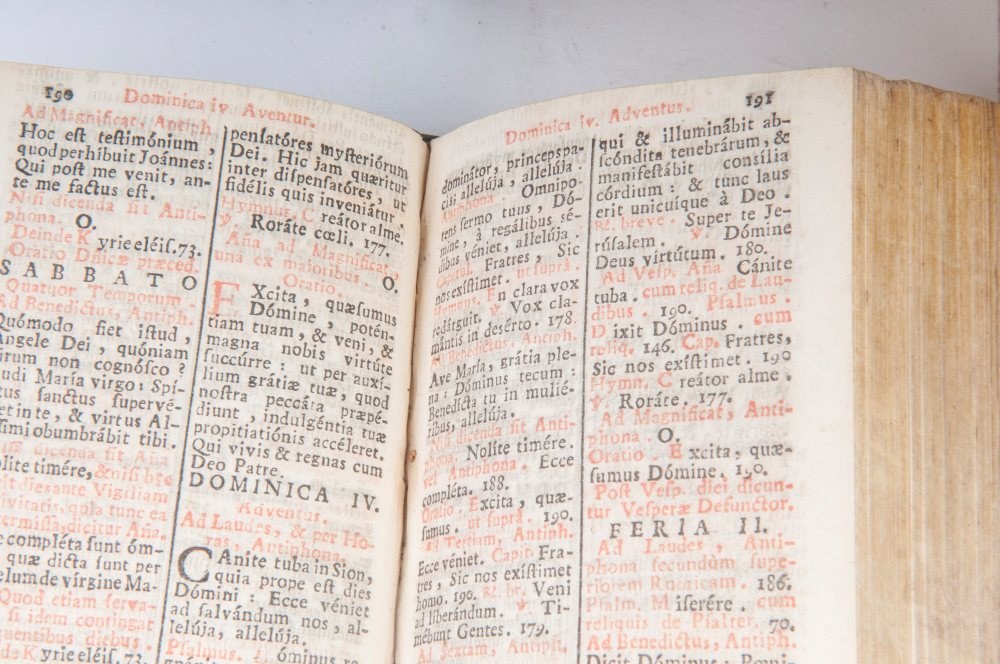 190
Dominica iv Aventur.
Ad Magnificat. Antiph
Hoc est testimónium,
quod perhibuit Joánnes:
Qui post me venit, an-
te me factus est.
Nisi dicenda sit Anti-
phona. O.
Deinde Kyrie eléis. 73.
Oratio Dñicæ præced.
SABBATO
Quatuor Temporum.
Ad Benedictus, Antiph.
Quómodo fiet istud,
Angele Dei, quóniam
virum non cognósco?
udi María virgo: Spí-
tus sanctus supervé-
et in te, & virtus Al-
simi obumbrábit tibi.
dicenda sit Aña
olite timére, & nisi
diesante Vigiliam
ivitatis, qala tunc ea
ermissa, dicitur Aña.
e compléta sunt óm-
quæ dicta sunt per
elum de vírgine Ma-
Quod etiam serva-
si idem contingat
quentibus diebus.
de Kyrie eléis. 73.
pensatóres mysteriórum
Dei. Hic jam quæritur
inter dispensatóres, ut
fidélis quis inveniátur.
Hymnus. Creátor alme.
℣. Roráte cœli. 177.
Aña ad Magnificat,
una ex majoribus. O.
Oratio.
EXcita, quæsumus
Dómine, potén-
tiam tuam, & veni, &
magna nobis virtúte
succúrre: ut per auxí-
lium grátiæ tuæ, quod
nostra peccáta præpé-
diunt, indulgéntia tuæ
propitiatiónis accéleret.
Qui vivis & regnas cum
Deo Patre.
DOMINICA IV.
Adventus.
Ad Laudes, & per Ho-
ras, Antiphona.
CAnite tuba in Sion,
quia prope est dies
Dómini: Ecce véniet
ad salvándum nos, al-
lelúja, allelúja.
Psalmus. Dóminus re-
191
Dominica iv. Adventus.
dominátor, princeps pa-
cis, allelúja, allelúja.
Antiphona. Omnípo-
tens sermo tuus, Dó-
mine, à regálibus sé-
dibus véniet, allelúja.
Capitul. Fratres, Sic
nos exístimet. ut suprà.
Hymnus. En clara vox
redárguit. ℣. Vox cla-
mántis in desérto. 178.
Ad Benedictus. Antiph.
Ave María, grátia ple-
na: Dóminus tecum:
Benedícta tu in mulié-
ribus, allelúja.
Nisi dicenda sit Anti-
phona. Nolíte timére.
vel Antiphona. Ecce
compléta. 188.
Oratio. Excita, quæ-
sumus. ut suprà. 190.
Ad Tertiam, Antiph.
Ecce véniet. Capit. Fra-
tres, Sic nos exístimet
homo. 190. ℟. br. Veni
ad liberándum. ℣. Ti-
mébunt Gentes. 179.
Ad Sextam, Antiph.
qui & illuminábit ab-
scóndita tenebrárum, &
manifestábit consília
córdium: & tunc laus
erit unicuíque à Deo.
℟. breve. Super te Je-
rúsalem. ℣. Dómine
Deus virtútum. 180.
Ad Vesp. Aña Cánite
tuba. cum reliq. de Lau-
dibus. 190. Psalmus.
Dixit Dóminus. cum
reliq. 146. Cap. Fratres,
Sic nos exístimet. 190
Hymn. Creátor alme.
℣. Roráte. 177.
Ad Magnificat, Anti-
phona O.
Oratio. Excita, quæ-
sumus Dómine. 190.
Post Vesp. diei dicun-
tur Vesperæ Defunctor.
FERIA II.
Ad Laudes, Anti-
phona secundùm supe-
riorem Rubricam. 186.
Psalm. Miserére. cum
reliquis de Psalter. 70.
Ad Benedictus, Antiph.
Dicit Dóminus: